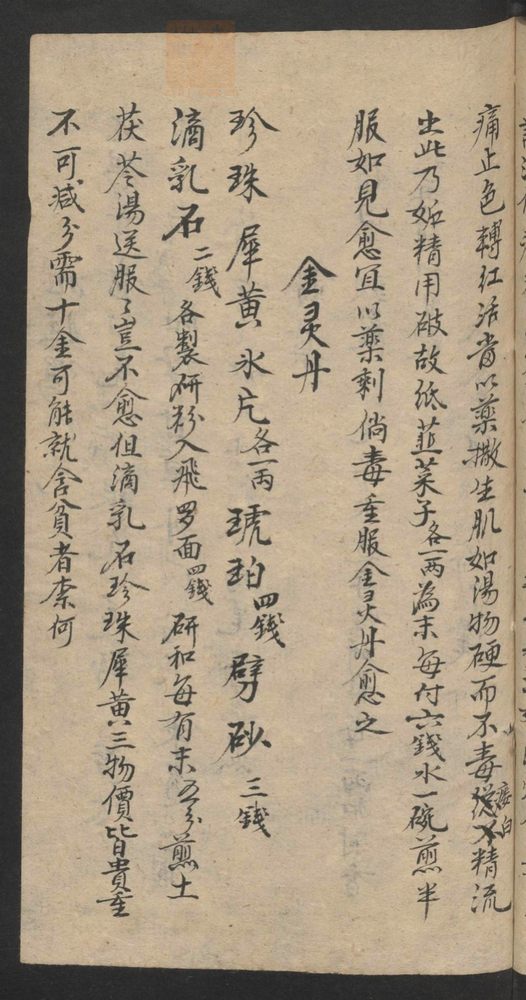 痛止色轉红活當以藥撒生肌如湯物硬而不毒從不精流
痿白
出此乃妬精用破故纸韮菜子各一両為末每付六錢水一碗煎半
服如見愈宜以藥剩倘毒重服金灵丹愈之
金灵丹
珍珠犀黄氷片各一両琥珀四錢劈砂三錢
滴乳石二錢各製研粉入飛罗面四錢研和每有末五分煎土
茯苓湯送服々豈不愈但滴乳石珍珠犀黄三物價皆貴重
不可減分需十金可能就含貧者柰何